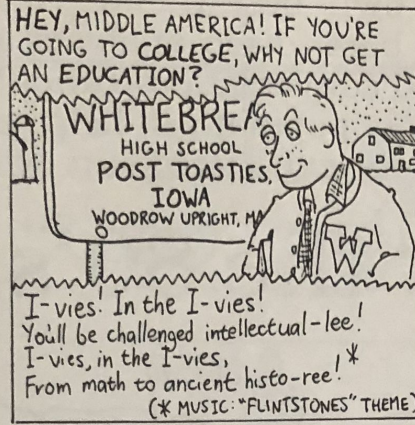 HEY, MIDDLE AMERICA! IF YOU'RE
GOING TO COLLEGE, WHY NOT GET
AN EDUCATION?
WHITEBREA
HIGH SCHOOL
POST TOASTIES,
IOWA
WOODROW UPRIGHT,
W
I-vies! In the I-vies!
You'll be challenged intellectual-lee!
I-vies, in the I-vies,
From math to ancient histo-ree!*
(* MUSIC: "FLINTSTONES" THEME)